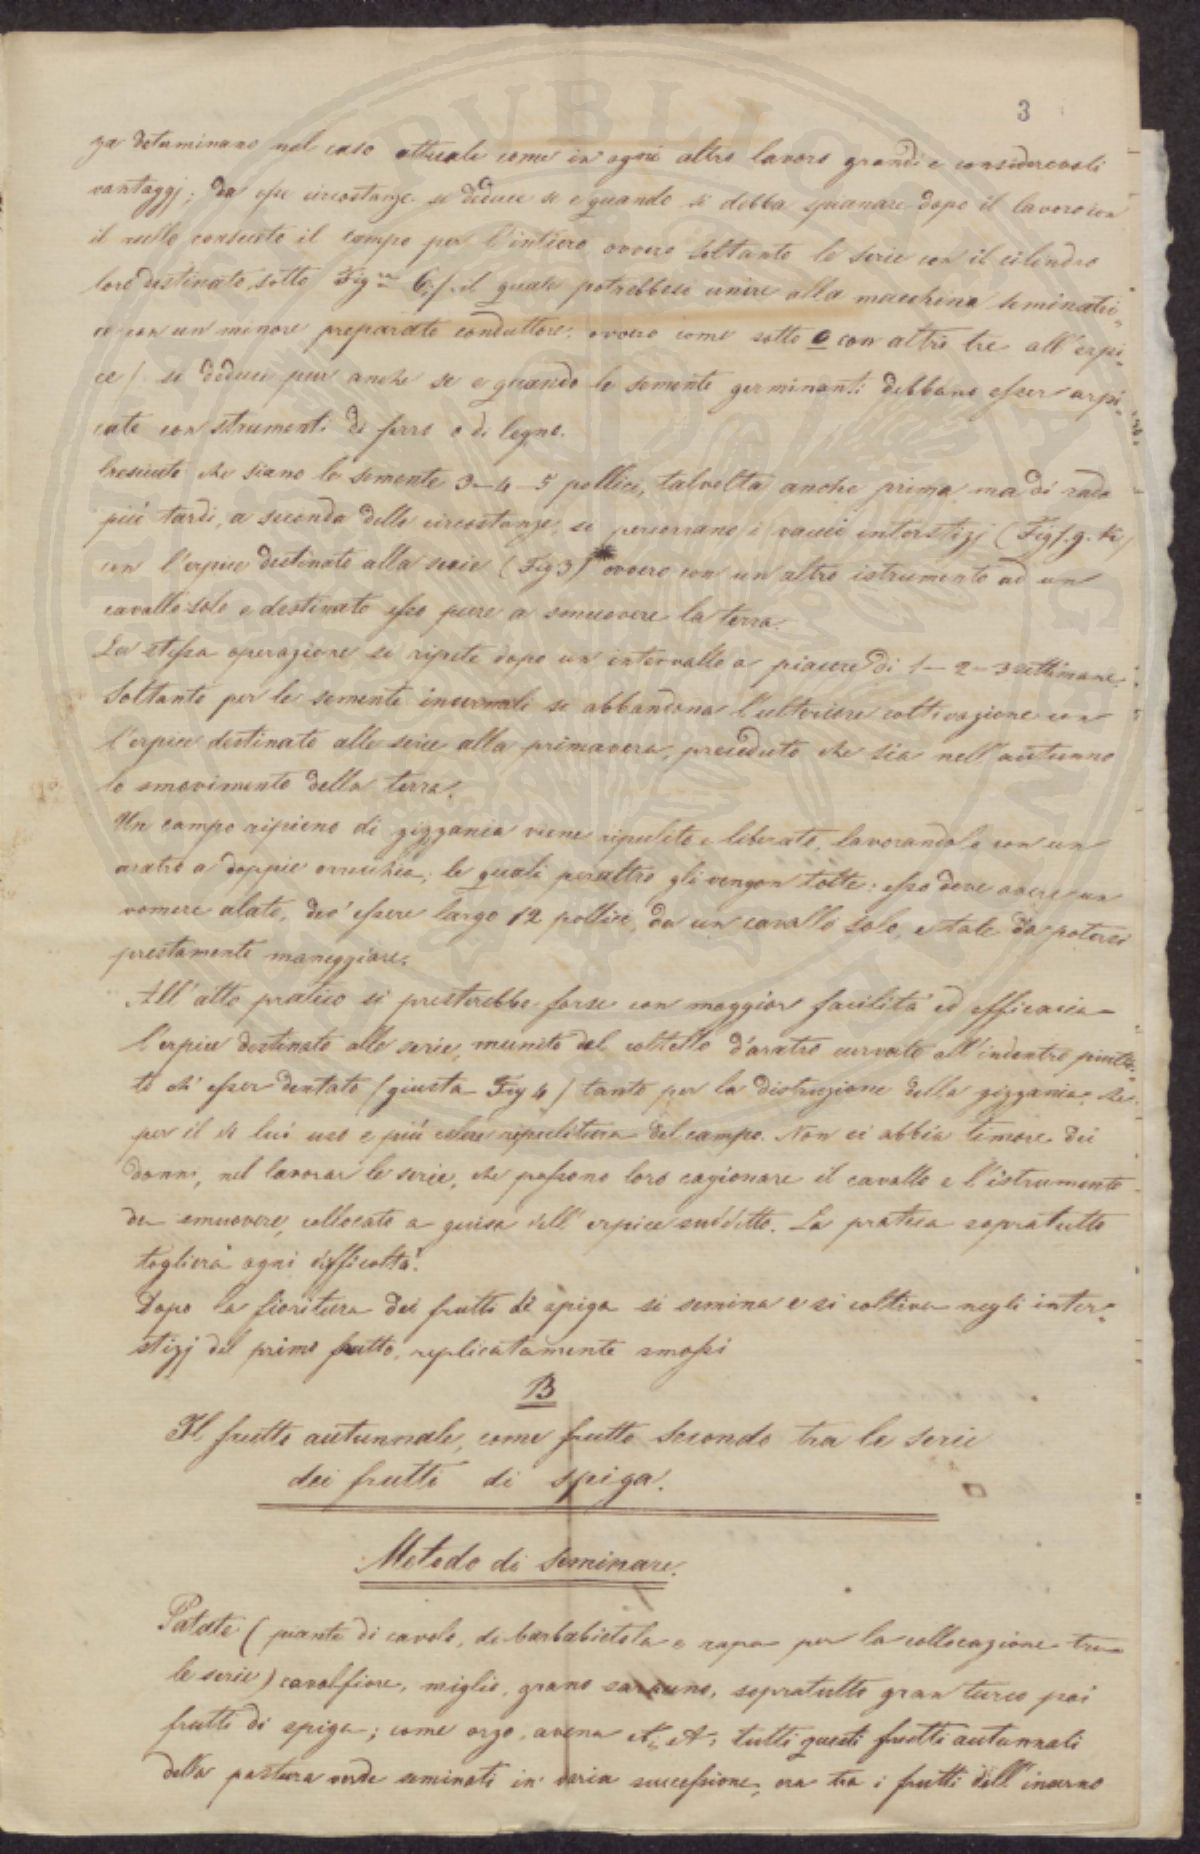 3
za determinano nel caso attuale come in ogni altro lavoro grandi e considerevoli
vantaggj; da esse circostanze si deduce se e quando si debba spianare dopo il lavoro con
il rullo consueto il campo per l'intiero ovvero soltanto le serie con il cilindro
loro destinato, sotto Figra 6; f. il quale potrebbesi unire alla macchina seminatri=
ce con un minore preparato conduttore: ovvero come sotto e con altri tre all'erpi=
ce / si deduce pur anche se e quando le semente germinanti debbano esser arpi=
cate con strumenti di ferro o di legno.
Cresciute che siano le semente 3-4-5 pollici, talvolta anche prima, ma di rado
più tardi, a seconda delle circostanze, si percorrano i vacui interstizj (Fig f. g. k)
con l'erpice destinato alla serie (Fig 3) ovvero con un altro istrumento ad un
cavallo solo e destinato esso pure a smuovere la terra.
La stessa operazione si ripete dopo un intervallo a piacere di 1-2-3 settimane.
Soltanto per le semente invernali si abbandona l'ulteriore coltivazione con
l'erpice destinato alle serie alla primavera, preceduto che sia nell'autunno
lo smovimento della terra.
Un campo ripieno di zizzania viene ripulito e liberato, lavorandolo con un
aratro a doppie orecchie, le quali peraltro gli vengon tolte: esso deve avere un
vomere alato, dev'essere largo 12 pollici, da un cavallo solo, e tale da potersi
prestamente maneggiare.
All'atto pratico si presterebbe forse con maggior facilità ed efficacia
l'erpice destinato alle serie, munito del coltello d'aratro curvato all'indentro piutto=
to ch'esser dentato (giusta Fig 4) tanto per la distruzione della zizzania che
per il di lui uso e più celere ripulitura del campo. Non si abbia timore dei
danni, nel lavorar le serie, che possono loro cagionare il cavallo e l'istrumento
da smuovere, collocato a guisa dell'erpice suddetto. La pratica sopratutto
toglierà ogni difficoltà.
Dopo la fioritura dei frutti di spiga si semina e si coltiva negli inter=
stizj del primo frutto, replicatamente smossi
B
Il frutto autunnale, come frutto secondo tra le serie
dei frutti di spiga.
Metodo di seminare.
Patate (piante di cavolo, di barbabietola e rapa per la collocazione tra
le serie) cavolfiore, miglio, grano saraceno, sopratutto gran turco poi
frutti di spiga; come orzo, avena tutti questi frutti autunnali
della pastura verde seminati in varia successione, ora tra i frutti dell'inverno